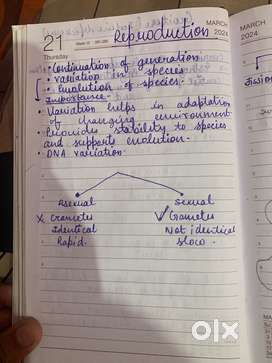 21
Thursday
MARCH
2024
Reproduction
• Continuation of generation
• Variation in species
• Evolution of species
Importance -
• Variation helps in adaptation
of changing environment
• Provides stability to species
and supports evolution
• DNA variation
Asexual
Sexual
X Gametes
✓ Gametes
Identical
Not identical
Rapid
slow
MARCH
2024
fission
olx